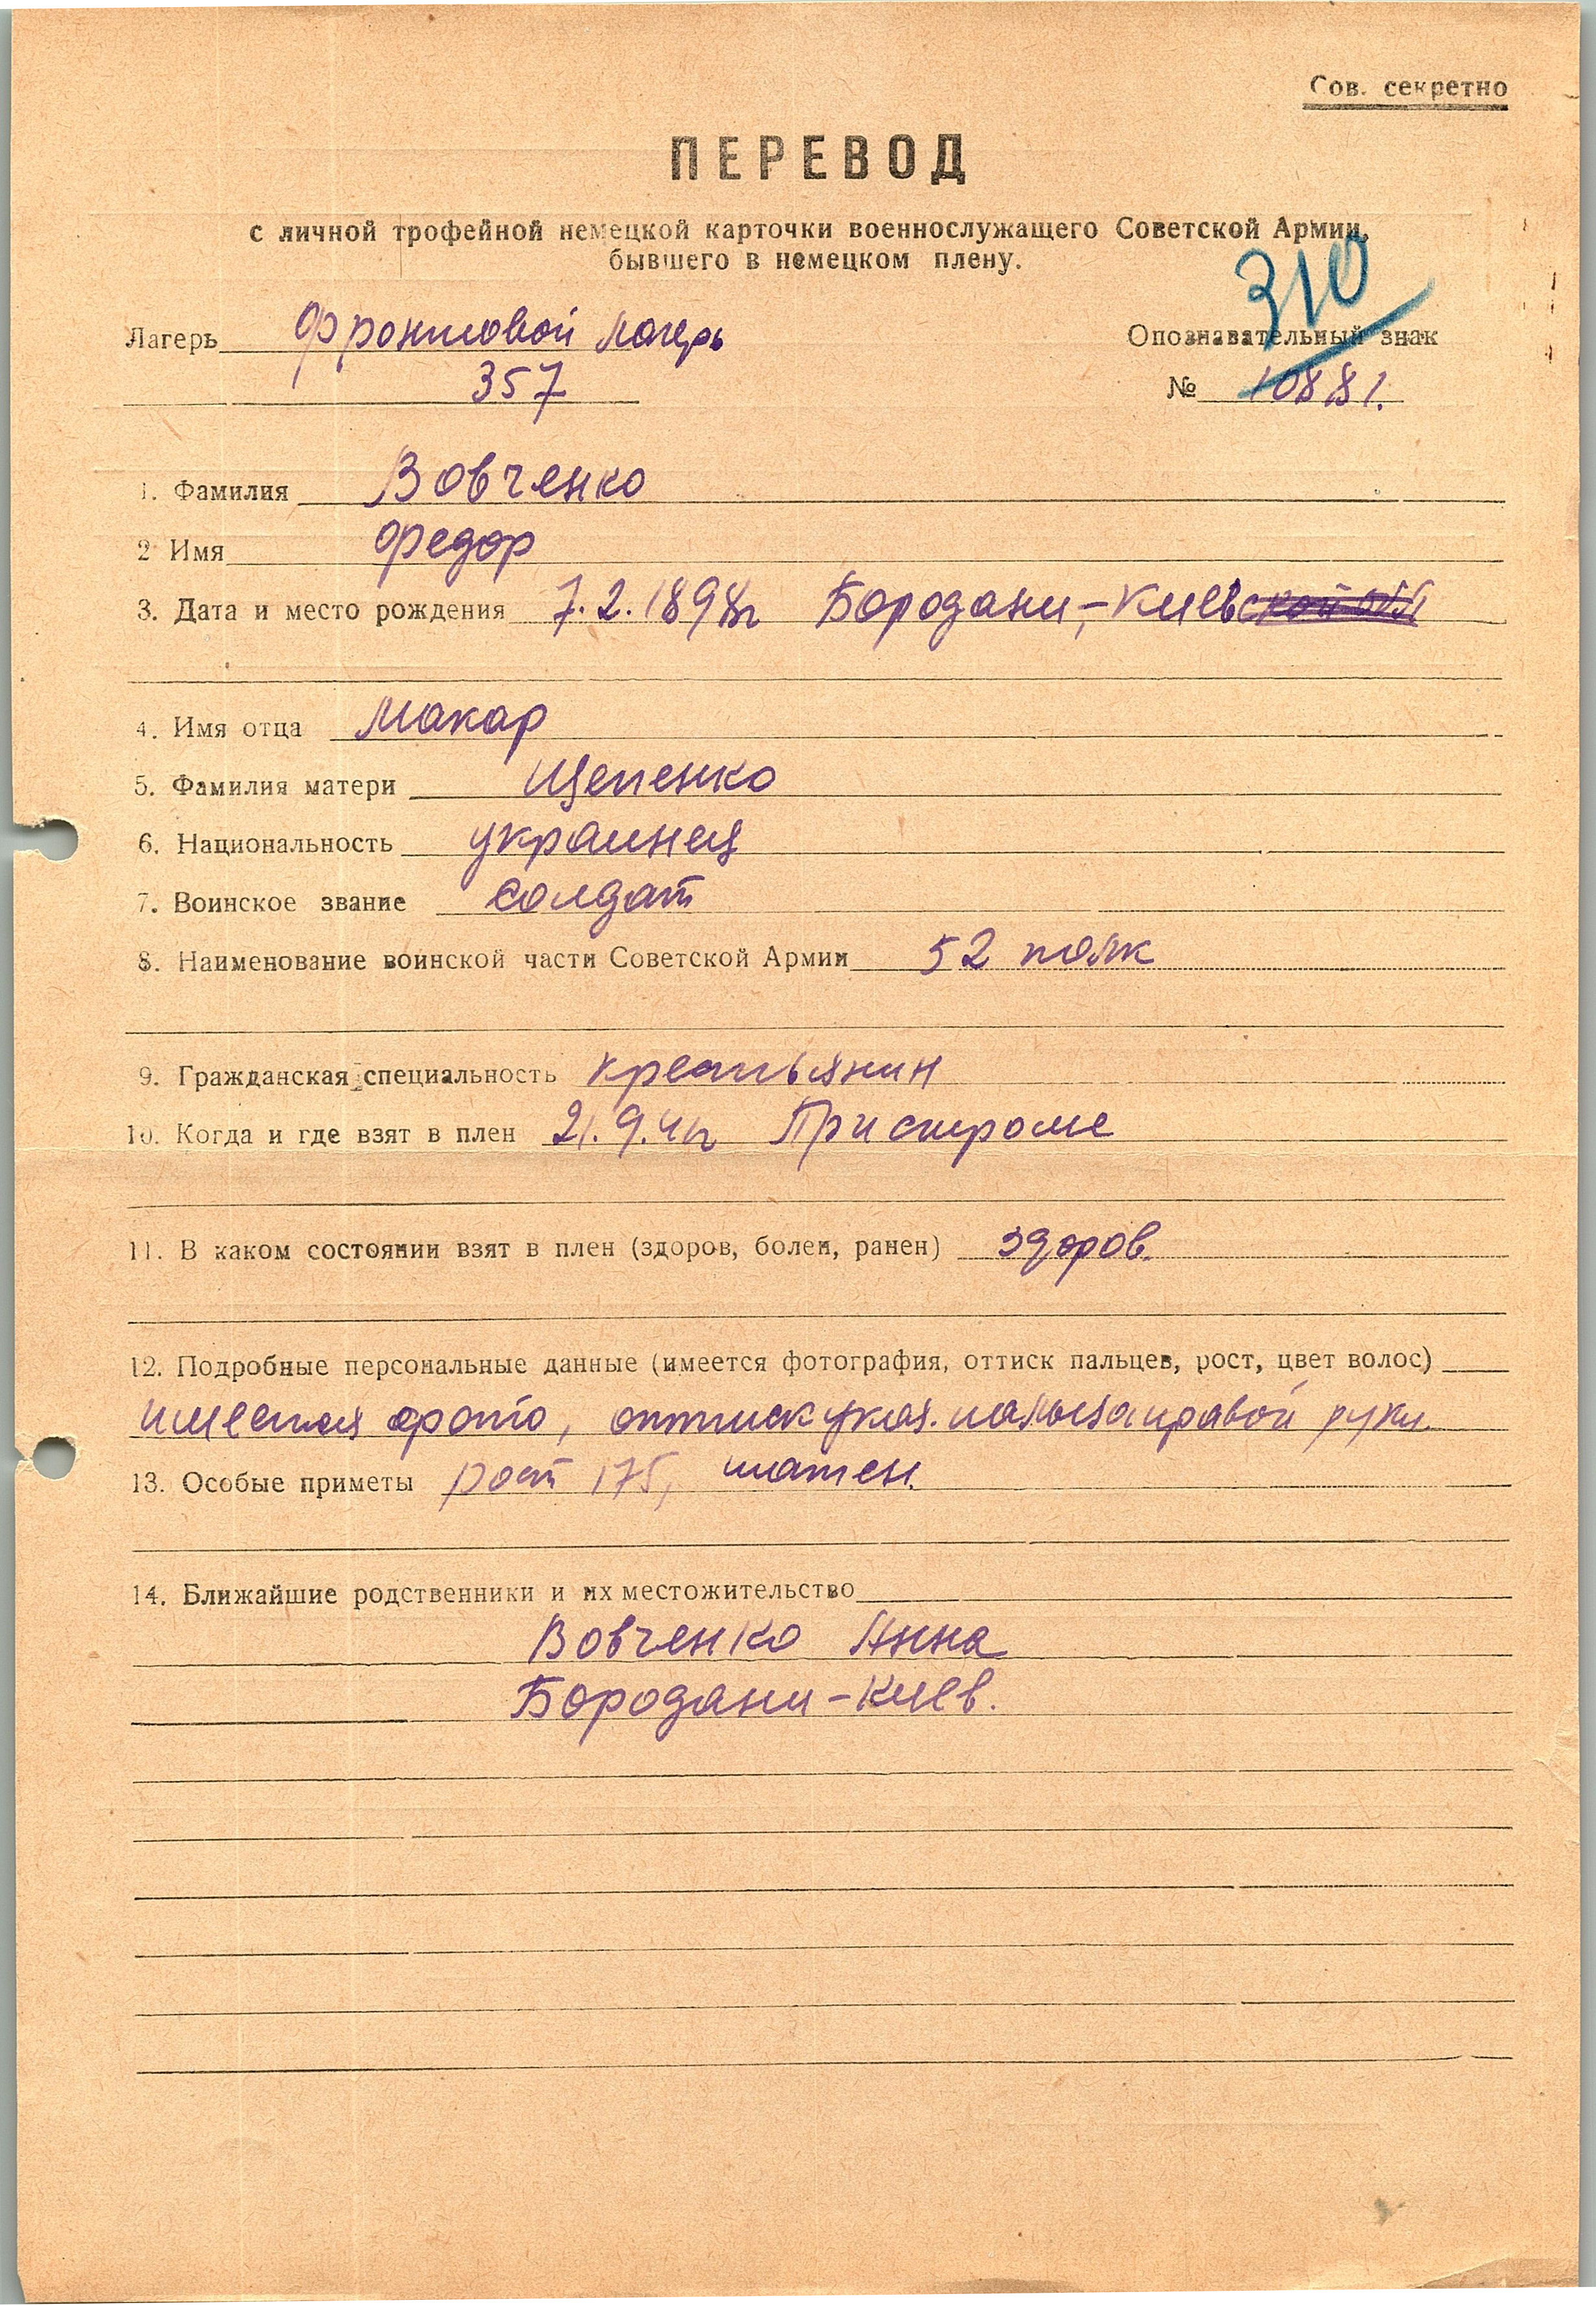 Сов. секретно
ПЕРЕВОД
с личной трофейной немецкой карточки военнослужащего Советской Армии,
бывшего в немецком плену.
310
Лагерь Фронтовой лагерь
Опознавательный знак
357
№ 10881.
1. Фамилия Вовченко
2 Имя Федор
3. Дата и место рождения 7.2.1898г Бородани,-Киевской обл
4. Имя отца Макар
5. Фамилия матери Щепенко
6. Национальность украинец
7. Воинское звание солдат
8. Наименование воинской части Советской Армии 52 полк
9. Гражданская специальность крестьянин
10. Когда и где взят в плен 21.9.41г Пристроме
11. В каком состоянии взят в плен (здоров, болен, ранен) здоров.
12. Подробные персональные данные (имеется фотография, оттиск пальцев, рост, цвет волос)
имеется фото, оттиск указ. пальца правой руки
13. Особые приметы рост 175, шатен.
14. Ближайшие родственники и их местожительство
Вовченко Анна
Бородани-Киев.